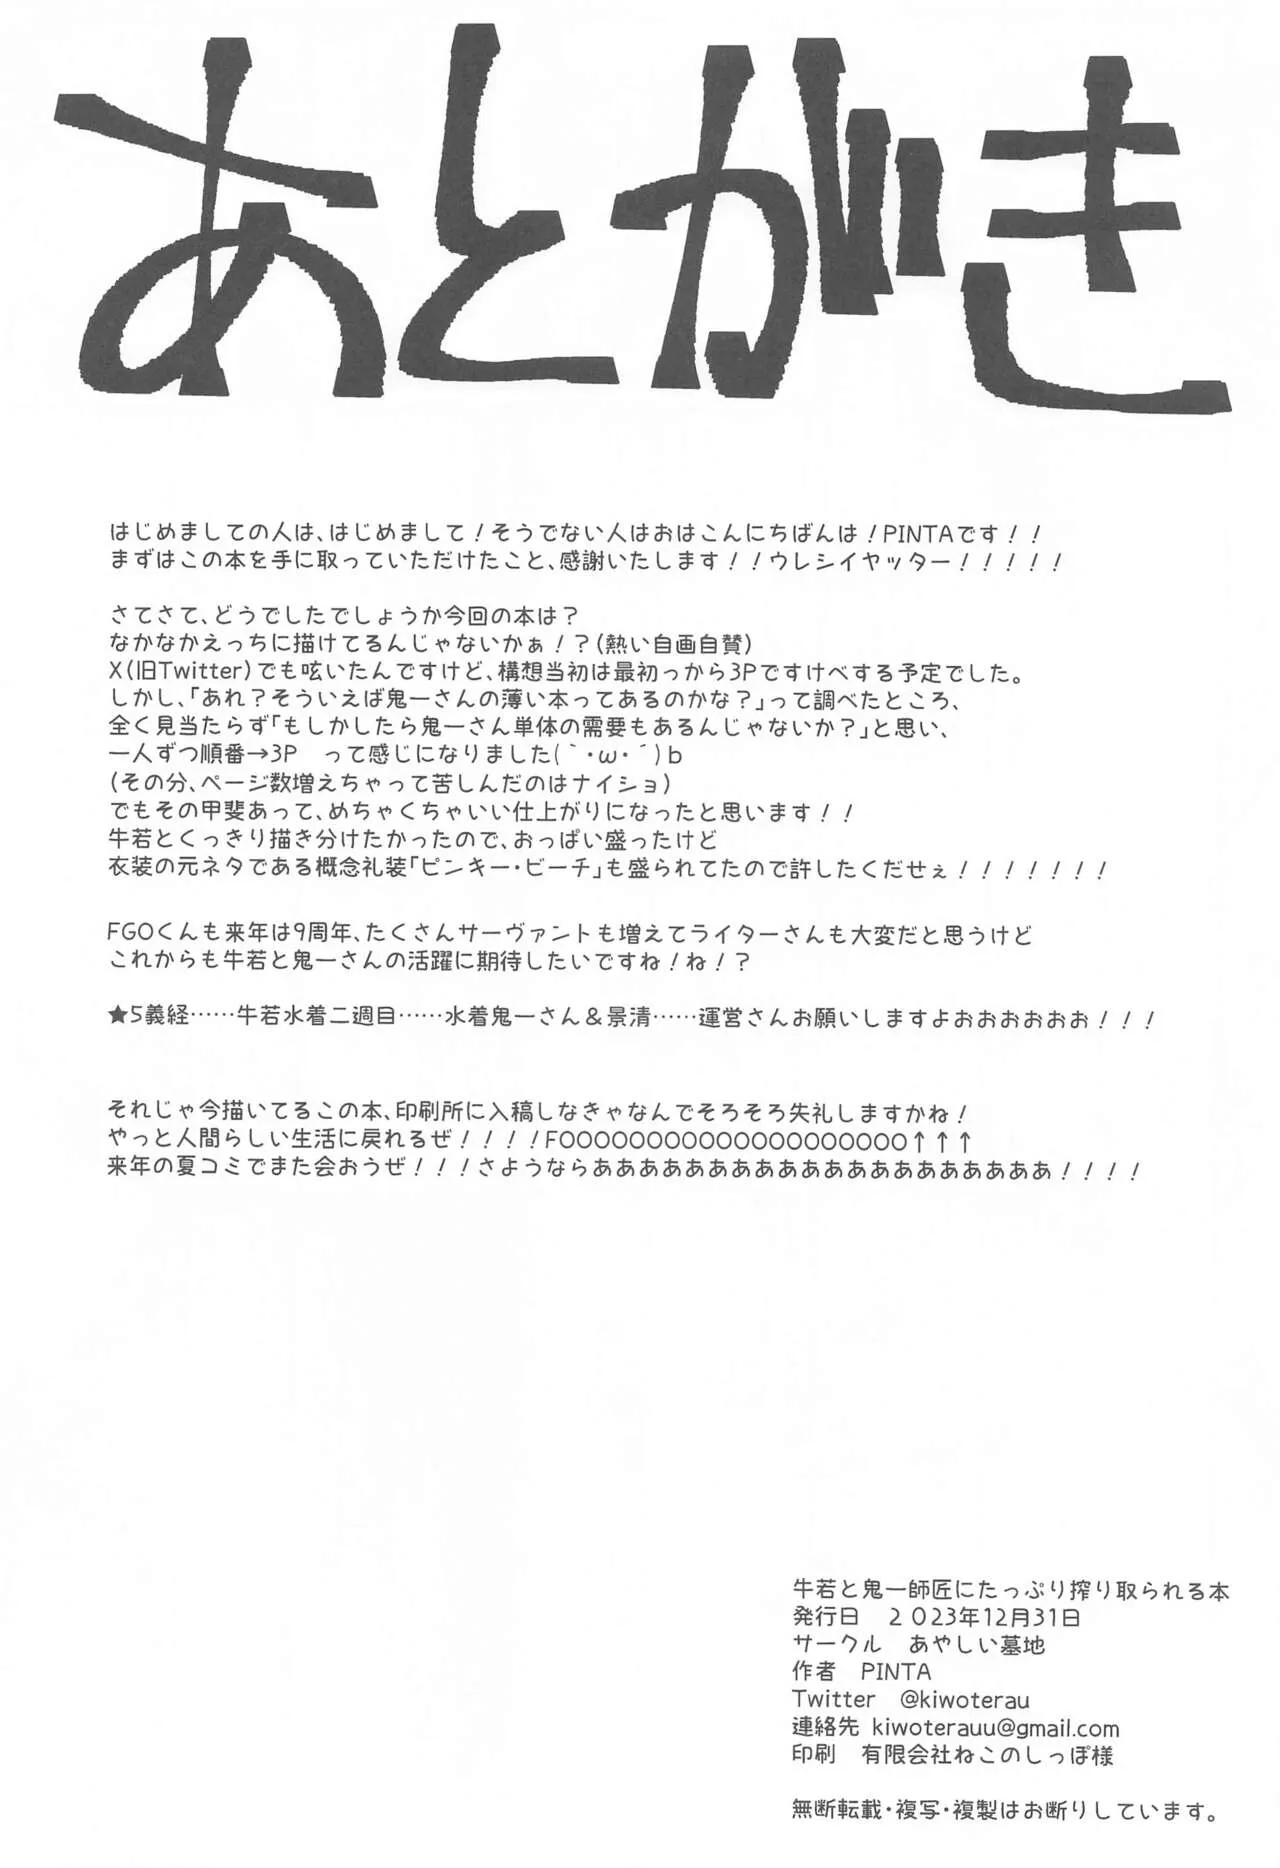 あとがき
はじめましての人は、はじめまして！そうでない人はおはこんにちばんは！PINTAです！！
まずはこの本を手に取っていただけたこと、感謝いたします！！ウレシイヤッター！！！！！
さてさて、どうでしたでしょうか今回の本は？
なかなかえっちに描けてるんじゃないかぁ！？(熱い自画自賛)
X(旧Twitter)でも呟いたんですけど、構想当初は最初っから3Pですけべする予定でした。
しかし、「あれ？そういえば鬼一さんの薄い本ってあるのかな？」って調べたところ、
全く見当たらず「もしかしたら鬼一さん単体の需要もあるんじゃないか？」と思い、
一人ずつ順番→3P　って感じになりました(｀・ω・´)b
(その分、ページ数増えちゃって苦しんだのはナイショ)
でもその甲斐あって、めちゃくちゃいい仕上がりになったと思います！！
牛若とくっきり描き分けたかったので、おっぱい盛ったけど
衣装の元ネタである概念礼装「ピンキー・ビーチ」も盛られてたので許したくだせぇ！！！！！！！
FGOくんも来年は9周年、たくさんサーヴァントも増えてライターさんも大変だと思うけど
これからも牛若と鬼一さんの活躍に期待したいですね！ね！？
★5義経……牛若水着二週目……水着鬼一さん＆景清……運営さんお願いしますよおおおおおお！！！
それじゃ今描いてるこの本、印刷所に入稿しなきゃなんでそろそろ失礼しますかね！
やっと人間らしい生活に戻れるぜ！！！！FOOOOOOOOOOOOOOOOOOOO↑↑↑
来年の夏コミでまた会おうぜ！！！さようならぁぁぁぁぁぁぁぁぁぁぁぁぁぁぁぁぁぁぁぁ！！！！
牛若と鬼一師匠にたっぷり搾り取られる本
発行日　2023年12月31日
サークル　あやしい墓地
作者　PINTA
Twitter　@kiwoterau
連絡先 kiwoterauu@gmail.com
印刷　有限会社ねこのしっぽ様
無断転載・複写・複製はお断りしています。